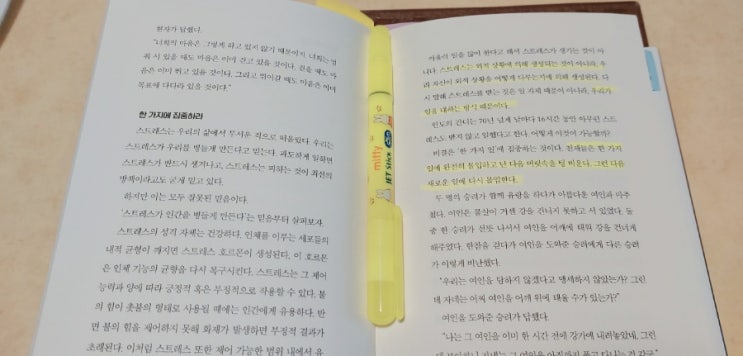 현자가 답했다.
"너희의 마음은 그렇게 하고 있지 않기 때문이지. 너희는 앉
워 시 있을 때도 마음은 이미 걷고 있을 것이다. 걷을 때도 마
음은 이미 뛰고 있을 것이다. 그리고 뛰어갈 때도 마음은 이미
목표에 다다라 있을 것이다."
한 가지에 집중하라
스트레스는 우리의 삶에서 무서운 적으로 떠올랐다. 우리는
스트레스가 우리를 병들게 만든다고 믿는다. 과도하게 일하면
스트레스가 반드시 생겨나고, 스트레스를 피하는 것이 최선의
방책이라고도 굳게 믿고 있다.
하지만 이는 모두 잘못된 믿음이다.
'스트레스가 인간을 병들게 만든다'는 믿음부터 살펴보자.
스트레스의 성격 자체는 건강하다. 인체를 이루는 세포들의
내적 균형이 깨지면 스트레스 호르몬이 생성된다. 이 호르몬
은 인체 기능의 균형을 다시 복구시킨다. 스트레스는 그 제어
능력과 양에 따라 긍정적 혹은 부정적으로 작용할 수 있다. 불
의 힘이 촛불의 형태로 사용될 때에는 인간에게 유용하다. 반
면 불의 힘을 제어하지 못해 화재가 발생하면 부정적 결과가
초래된다. 이처럼 스트레스 또한 제어 가능한 범위 내에서 유
miffy
JET Stick
아울러 일을 많이 한다고 해서 스트레스가 생기는 것이 아
니다. 스트레스는 외적 상황에 의해 생성되는 것이 아니라, 우
리 자신이 외적 상황을 어떻게 다루는지에 의해 생성된다. 다
시 말해 스트레스를 받는 것은 일 자체 때문이 아니라, 우리가
일을 대하는 방식 때문이다.
인도의 간디는 70년 넘게 날마다 16시간 동안 아무런 스트
레스도 받지 않고 일했다고 한다. 어떻게 이것이 가능할까?
비결은 '한 가지 일'에 집중하는 것이다. 천재들은 한 가지
일에 완전히 몰입하고 난 다음 머릿속을 텅 비운다. 그런 다음
새로운 일에 다시 몰입한다.
두 명의 승려가 함께 유랑을 하다가 아름다운 여인과 마주
쳤다. 여인은 물살이 거센 강을 건너지 못하고 서 있었다. 둘
중 한 승려가 선뜻 나서서 여인을 어깨에 태워 강을 건너게
해주었다. 한참을 걷다가 여인을 도와준 승려에게 다른 승려
가 이렇게 비난했다.
"우리는 여인을 탐하지 않겠다고 맹세하지 않았는가? 그런
데 자네는 어찌 여인을 어깨 위에 태울 수가 있는가?"
여인을 도와준 승려가 답했다.
"나는 그 여인을 이미 한 시간 전에 강가에 내려놓았네. 그런